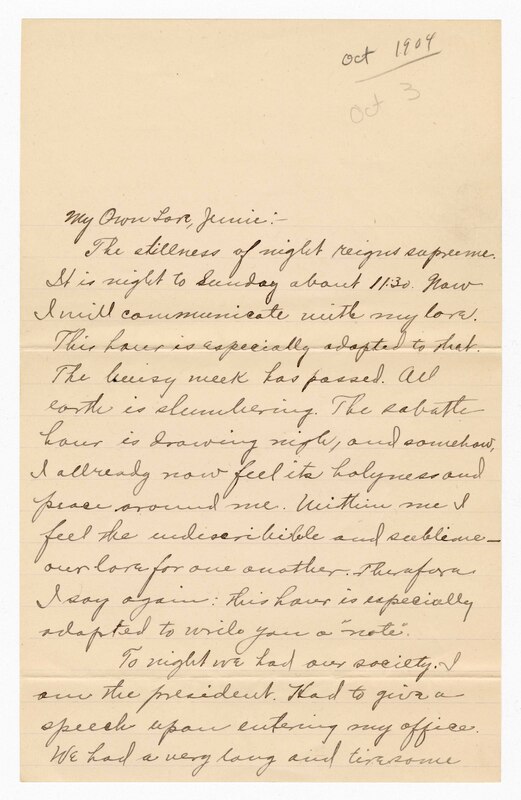 Oct 1904
Oct 3
My Own Love, Jennie:-
The stillness of night reigns supreme.
It is night to Sunday about 11:30. Now
I will communicate with my love.
This hour is especially adapted to that.
The buisy week has passed. All
earth is slumbering. The sabath
hour is drawing nigh, and somehow,
I allready now feel its holyness and
peace around me. Within me I
feel the undiscribible and sublime-
our love for one another. Therefore
I say again: this hour is especially
adapted to write you a "note".
To night we had our society. I
am the president. Had to give a
speech upon entering my office.
We had a very long and tiresome